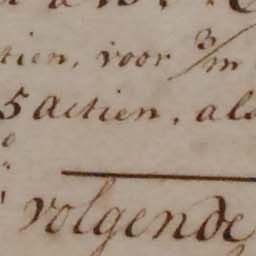 tien, voor 3/m
5 actien, als
volgende